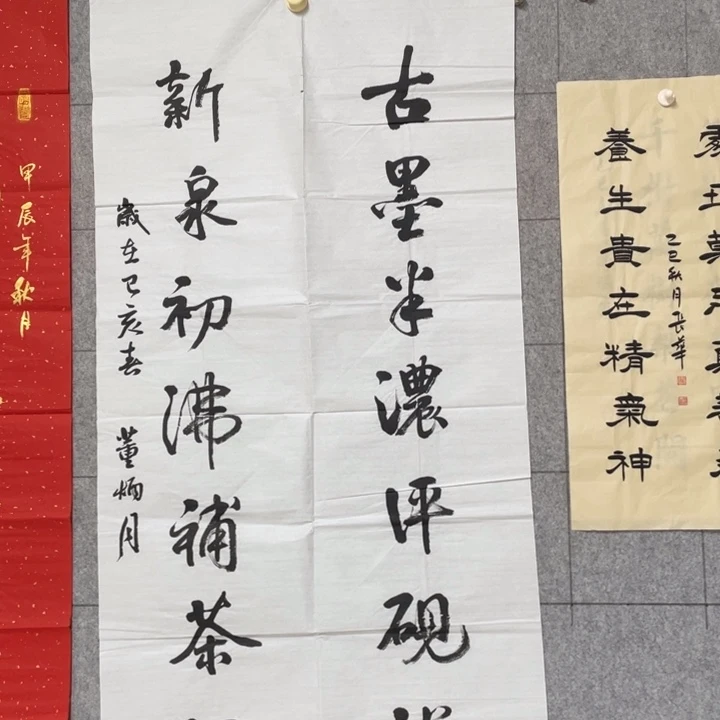 養生貴在精氣神
乙巳秋月長華
古墨半濃評硯
新泉初沸補茶
歲在己亥春 董炳月
甲辰年秋月